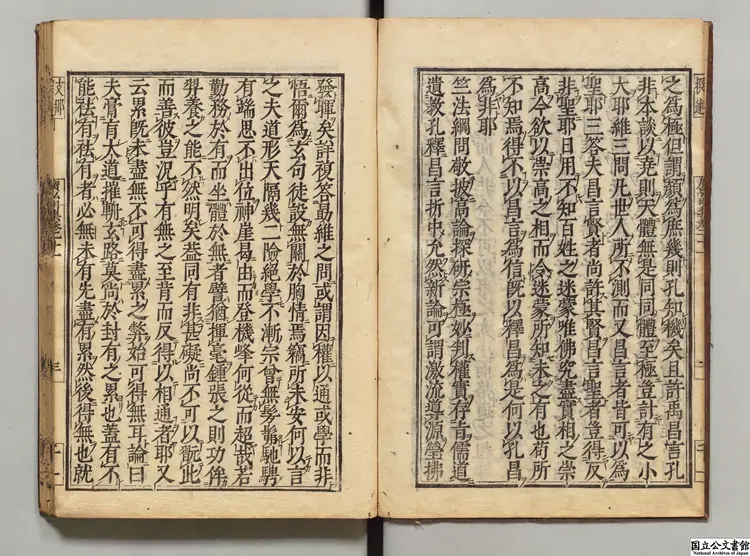 之爲極但謂顏爲庶幾則孔知穢矣且許禹昌言孔
非本談以堯則天體無是同同體至極豈計有之小
大耶維三問凡世人所不測而又昌言者皆可以爲
聖耶三答夫昌言賢者尚許其賢昌言聖者豈得反
非聖耶日用不知百姓之迷蒙唯佛究盡實相之崇
高今欲以崇高之相而令迷蒙所知未之有也苟所
不知焉得不以昌言爲信既以釋昌爲是何以孔昌
爲非耶
竺法綱問敬披高論探研宗極妙判權實存旨儒道
遺教孔釋昌言折中允然新論可謂激流導源瑩拂
發暉矣詳複答勗維之問或謂因權以通或學而非
悟爾爲玄句徒設無關於胸情焉竊所未安何以言
之夫道形天隔幾二險絶學不漸宗曾無髣髴馳騁
有端思不出位神崖曷由而登機峰何從而超哉若
勤務於有而坐體於無者譬猶揮毫鍾張之則功侔
羿養之能不然明矣葢同有非甚礙尚不可以翫此
而善彼豈況乎有無之至背而反得以相通者耶又
云累既未盡無不可得盡累之弊始可得無耳論曰
夫膏肓大道摧輈玄路莫尚於封有之累也蓋有不
能祛有祛有者必無未有先盡有累然後得無也就
国立公文書館
National Archives of Japan